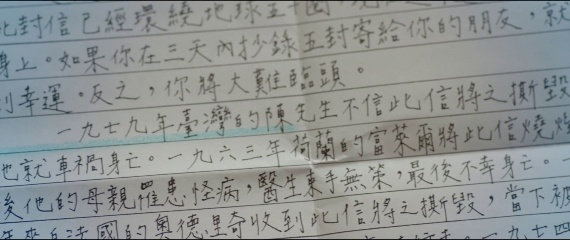 此封信已經環繞地球五十圈
身上。如果你在三天內抄錄五封寄給你的朋友，就
到幸運。反之，你將大難臨頭。
一九七九年臺灣的陳先生不信此信將之撕毀
他就車禍身亡。一九六三年荷蘭的富萊爾將此信燒燬
後他的母親罹患怪病，醫生束手無策，最後不幸身亡。一
年來自法國的奧德里奇收到此信將之撕毀，當下被
一九七四